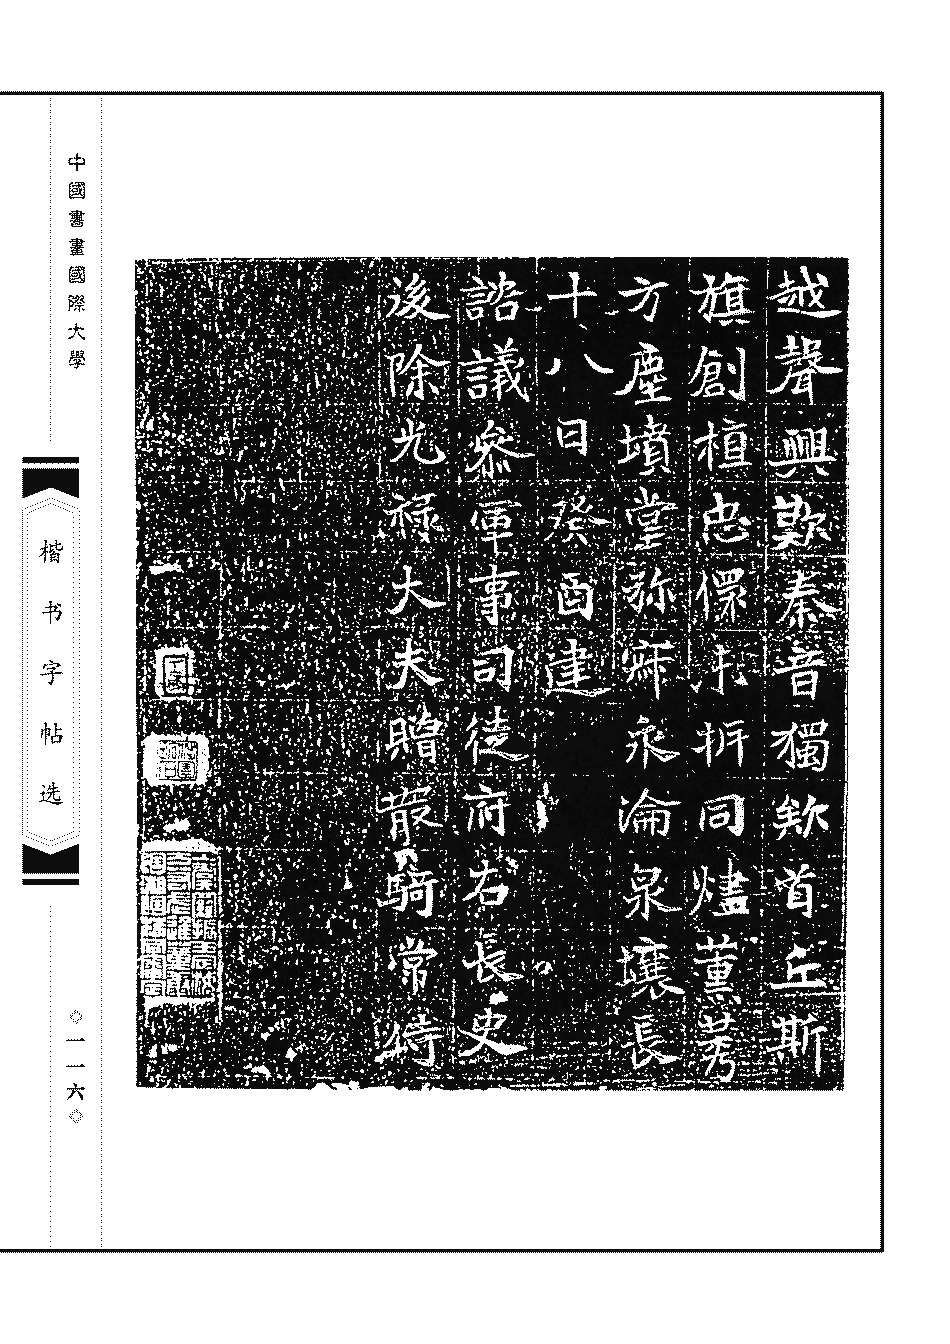 越聲興歎秦音獨欵首丘斯
旗創桓忠儇示拆同燼薰莠
方塵墳堂弥穽永淪泉壤長
十八日癸酉建
諮議叅軍事司徒府右長史
後除光祿大夫贈散騎常侍
中國書畫國際大學
楷书字帖选
◇一一六◇